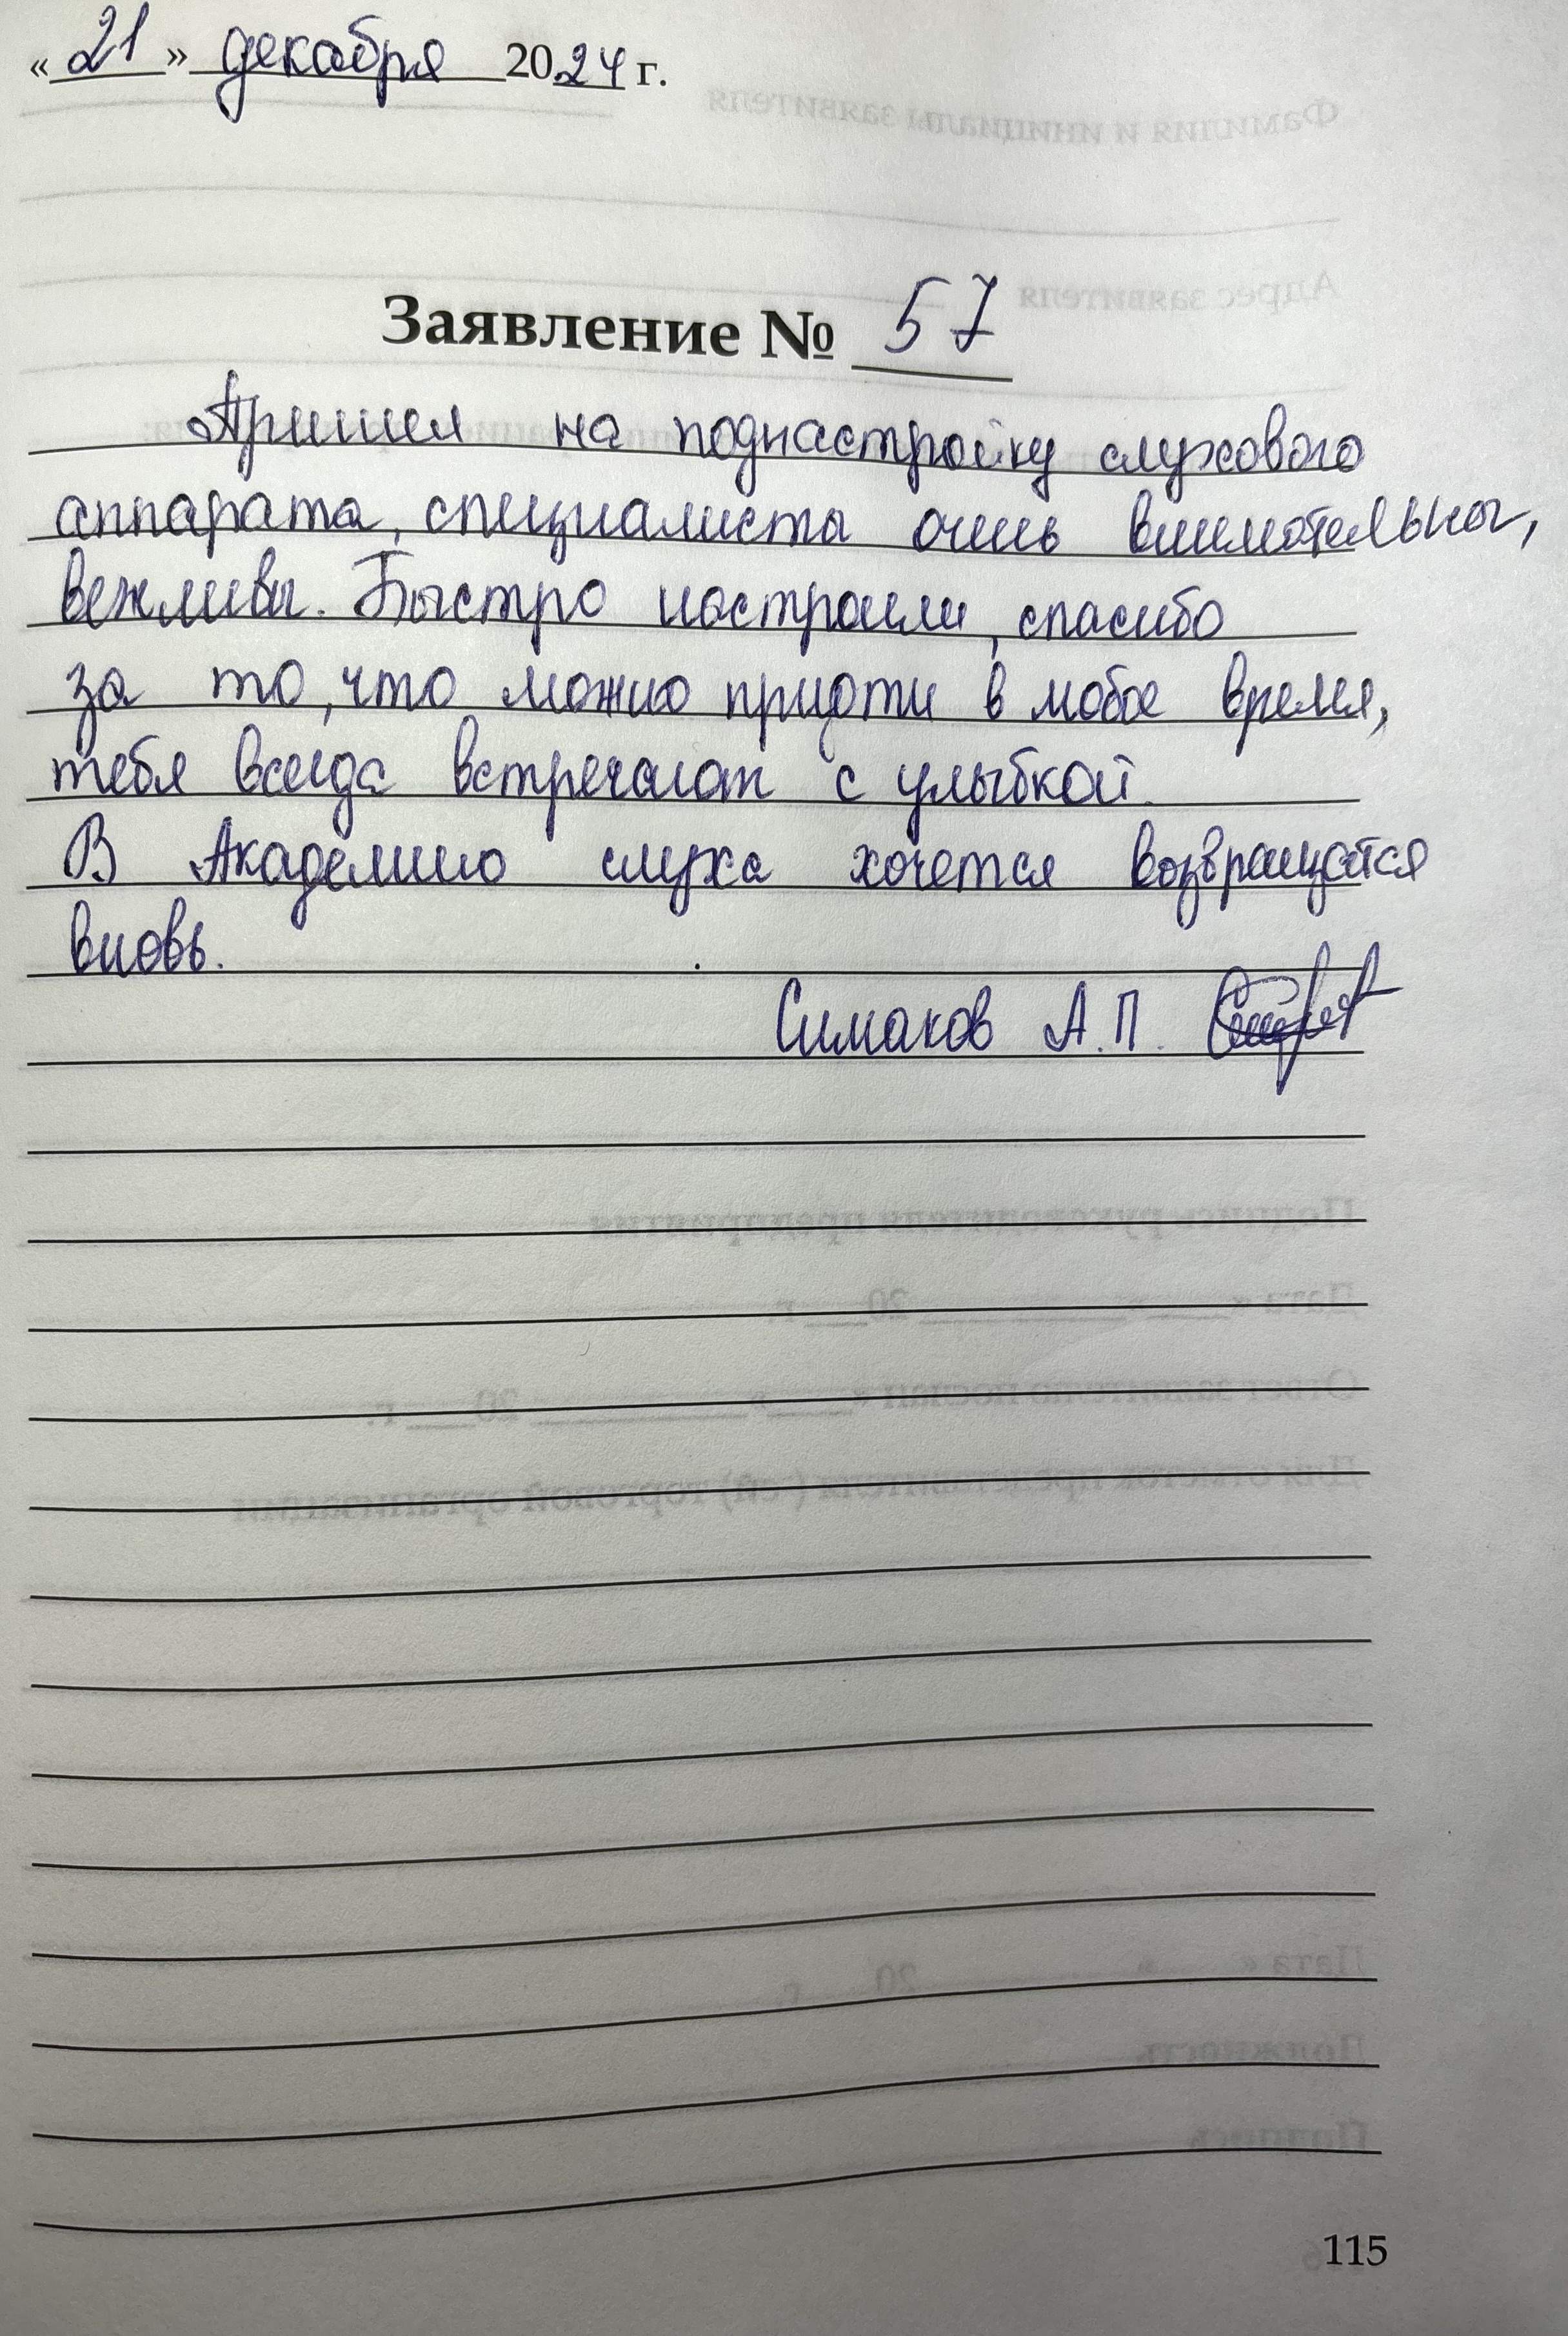 «21» декабря 2024 г.
Заявление № 57
Пришел на поднастройку слухового
аппарата, специалисты очень внимательны,
вежливы. Быстро настроили, спасибо
за то, что можно придти в любое время,
тебя всегда встречают с улыбкой.
В Академию слуха хочется возвращатся
вновь.
Симаков А.П.
115